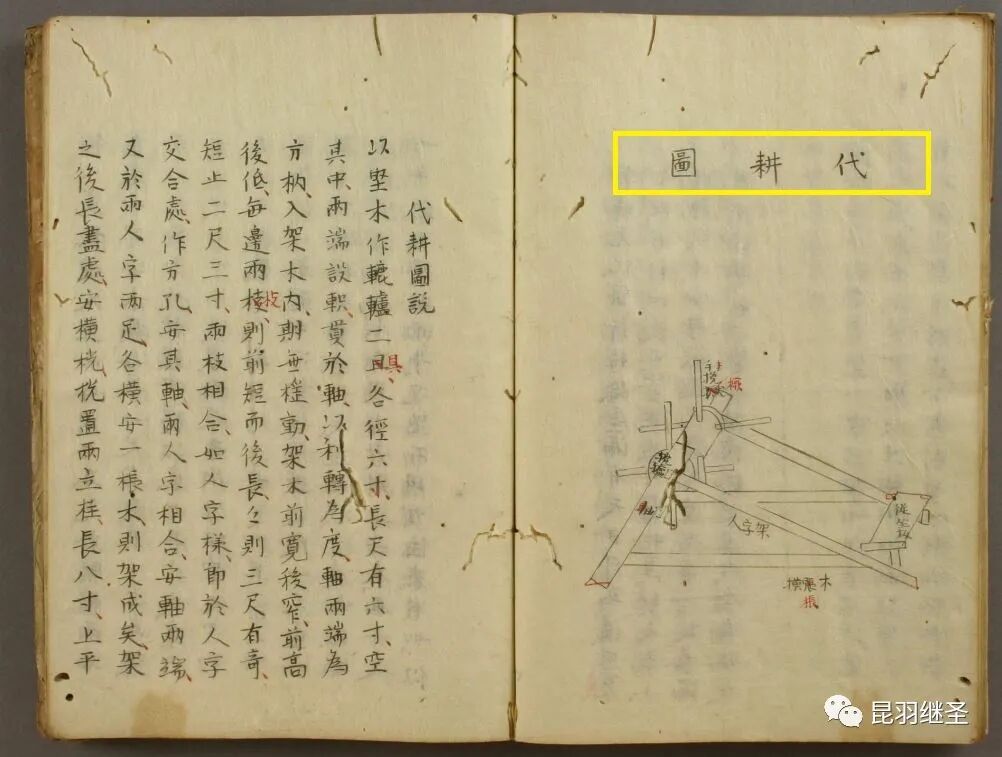 代耕圖
人字架
代耕圖說
以堅木作轆轤二具、各徑六寸、長尺有六寸、空
其中、兩端設軹、貫於軸、以利轉為度、軸兩端為
方枘、入架木內、期無搖動、架木前寬後窄、前高
後低、每邊兩枝、則前短而後長、々則三尺有奇、
短止二尺三寸、兩枝相合、如人字樣、即於人字
交合處、作方孔、安其軸、兩人字相合、安軸兩端、
又於兩人字兩足、各橫安一桭木、則架成矣、架
之後長盡處、安橫桄、桄置兩立柱、長八寸、上平
昆羽继圣